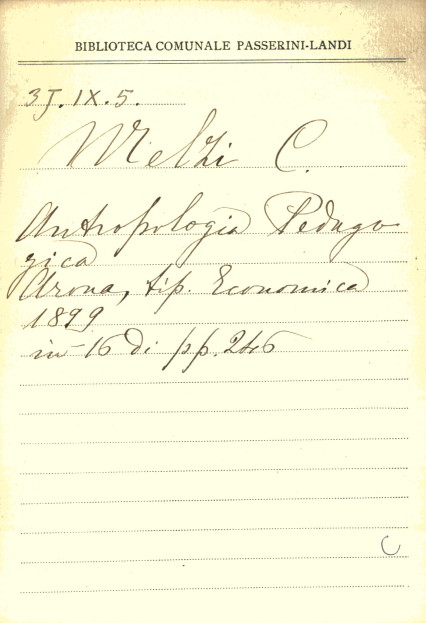 BIBLIOTECA COMUNALE PASSERINI-LANDI
3J.IX.5.
Melzi C.
Antropologia Pedago
gica
Arona, tip. Economica
1899
in-16 di pp. 246
C